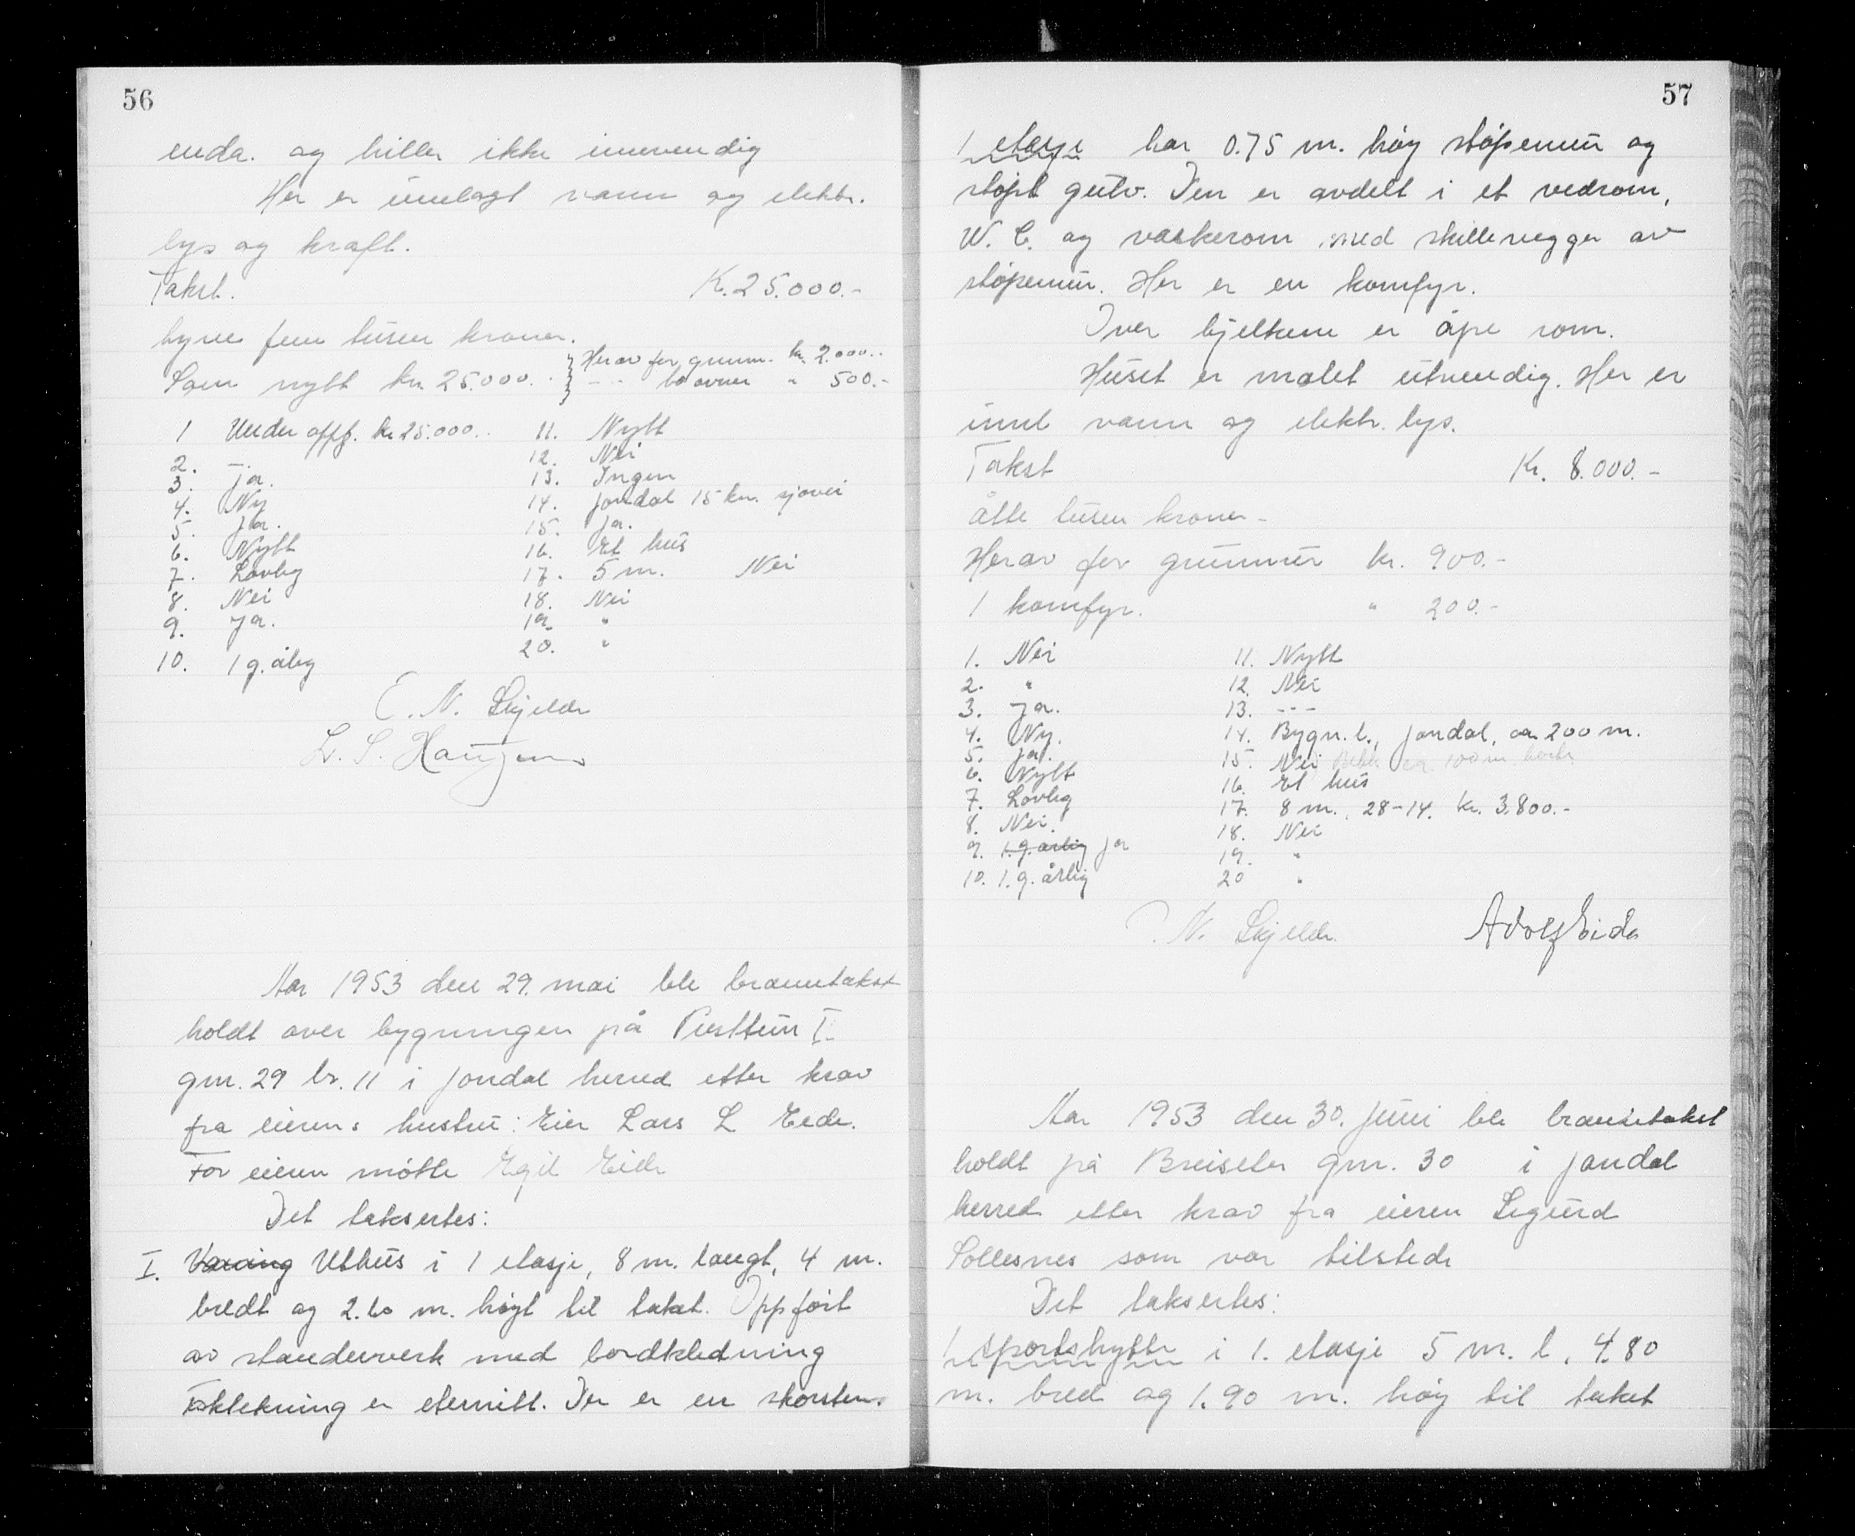 56
enda. og hiller ikke innvendig
Her er innlagt vann og elektr.
lys og kraft.
Takst. K. 25.000.-
tyve fem tusen kroner.
Som nytt kr. 25.000.
Herav for grunnm. kr. 2.000..
- - to ovner " 500.-
1 Under oppf. kr 25.000..
2. -
3. ja.
4. Ny
5. Ja.
6. Nytt
7. Lovlig
8. Nei
9. Ja.
10. 1 g. årlig
11. Nytt
12. Nei
13. Ingen
14. Jondal 15 km. sjøvei
15. Ja.
16. Et hus
17. 5 m. Nei
18. Nei
19. "
20. "
E. N. Skjelde
L. S. Haugen
Aar 1953 den 29. mai ble branntakst
holdt over bygningen på Tusttun I
gnr. 29 br. 11 i Jondal herred etter krav
fra eierens hustru: Eier Lars L Eide.
For eieren møtte Egil Eide
Det taksertes:
I. Vaaning Uthus i 1 etasje, 8 m. langt, 4 m.
bredt og 2.60 m. høgt til taket. Oppført
av standerverk med bordkledning
Taktekning er eternitt. Der er en skorsten.
57
1 etasje har 0.75 m. høy støpemur og
støpt gulv. Den er avdelt i et vedrom,
W. C. og vaskerom med skillevegger av
støpemur. Her er en komfyr.
Over bjelkene er åpe rom.
Huset er malet utvendig. Her er
innl vann og elektr. lys.
Takst Kr. 8.000.-
åtte tusen kroner-
Herav for grunnmur kr. 900.-
1 komfyr. " 200.-
1. Nei
2. "
3. Ja.
4. Ny.
5. Ja.
6. Nytt
7. Lovlig
8. Nei.
9. 1. g. årlig Ja
10. 1. g. årlig
11. Nytt
12. Nei
13. ---
14. Bygn. b., Jondal, ca 200 m.
15. Nei ca 100 m. borte
16. Et hus
17. 8 m. 28-14. kr. 3.800.-
18. Nei
19. "
20 "
E. N. Skjelde. Adolf Eide
Aar 1953 den 30. juni ble branntakst
holdt på Breiseter gnr. 30 i Jondal
herred etter krav fra eieren Sigurd
Sollesnes som var tilstede
Det taksertes:
1 sportshytte i 1. etasje 5 m. l, 4.80
m. bred og 1.90 m. høy til taket